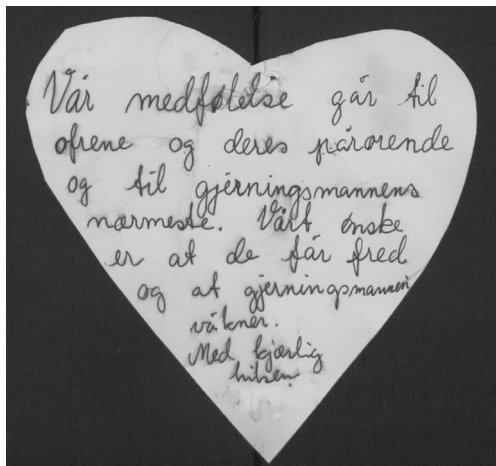 Vår medfølelse går til
ofrene og deres pårørende
og til gjerningsmannens
nærmeste. Vårt ønske
er at de får fred
og at gjerningsmannen
våkner.
Med kjærlig
hilsen